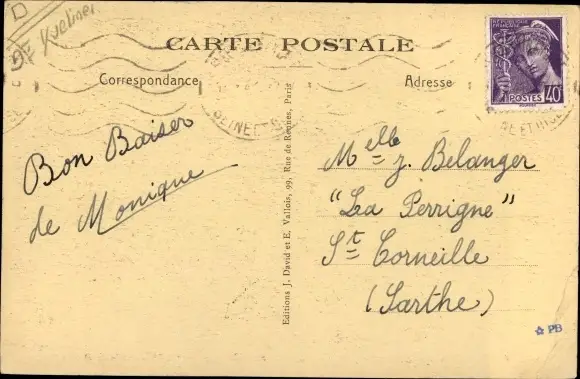 D
Yvelines
CARTE POSTALE
Correspondance
Adresse
RÉPUBLIQUE FRANÇAISE
POSTES 40c
SEINE
Bon Baiser
de Monique
Editions J. David et E. Vallois, 99, Rue de Rennes, Paris
Melle J. Belanger
"La Perrigne"
St Corneille
(Sarthe)
PB